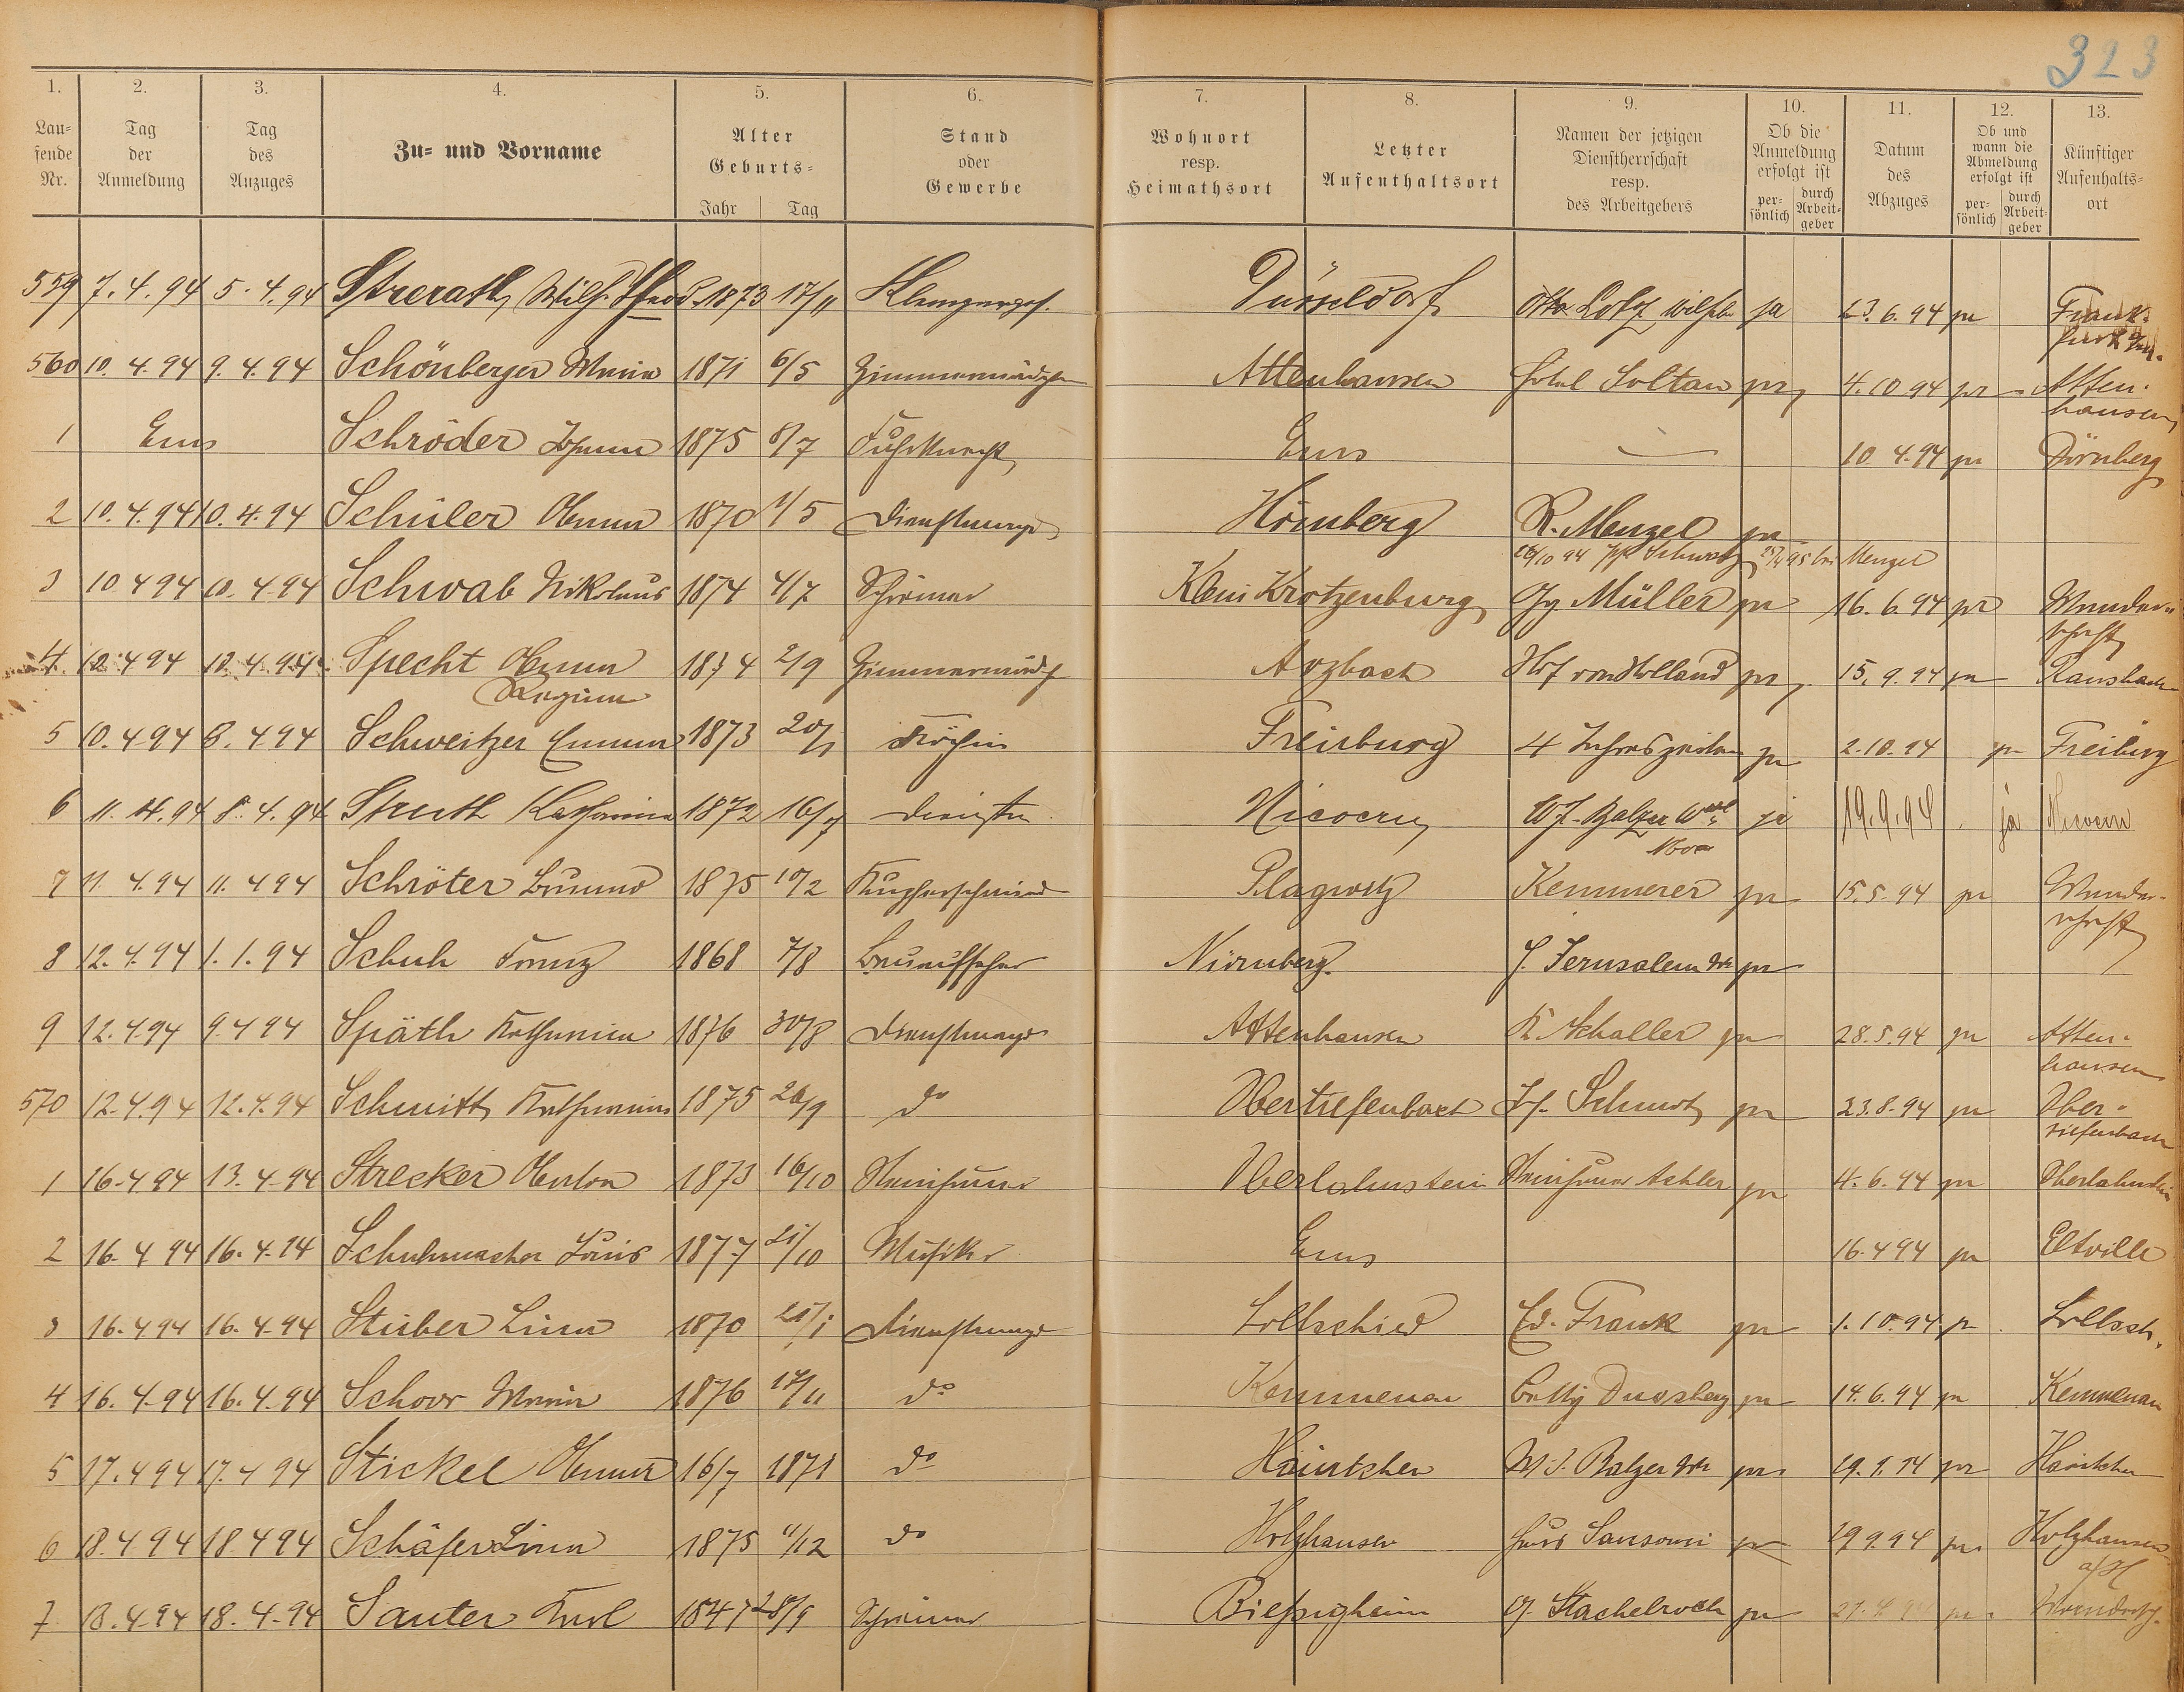 323
1. 2. 3. 4. 5. 6. 7. 8. 9. 10. 11. 12. 13.
Lau=
fende
Nr.
Tag
der
Anmeldung
Tag
des
Anzuges
Zu= und Vorname
Alter
Geburts=
Jahr Tag
Stand
oder
Gewerbe
Wohnort
resp.
Heimathsort
Letzter
Aufenthaltsort
Namen der jetzigen
Dienstherrschaft
resp.
des Arbeitgebers
Ob die
Anmeldung
erfolgt ist
per=
sönlich
durch
Arbeit=
geber
Datum
des
Abzuges
Ob und
wann die
Abmeldung
erfolgt ist
per=
sönlich
durch
Arbeit=
geber
Künftiger
Aufenhalts=
ort
559 7.4.94 5.4.94 Strerath, Wilh. 1873 17/11 Düsseldorf Otto Lotz ja 23.6.94 Frank-
560 10.4.94 9.4.94 Schönberger Maria 1871 6/5 Zimmermädchen Attenhausen Hotel Soltau 4.10 94 Atten-
hausen
1 Ems Schröder Johann 1875 8/7 Fuhrknecht Ems 10 4.94 Dörnberg
2 10.4.94 10.4.94 Schüler Anna 1870 1/5 Dienstmagd Hömberg R. Menzel ja
26/10 94 Schwatz bei Menzel
3 10 4 94 10.4.94 Schwab Nikolaus 1874 4/7 Schreiner Klein Krotzenburg Gg Müller ja 16.6.94 Wander-
schaft
4 10.4 94 10.4.94 Specht Anna 1874 2/9 Zimmermädch Arzbach Hof von Holland 15.9.94 ja Ransbach
Regina
5 10.4 94 8.4 94 Schweitzer Emma 1873 20/1 Köchin Freiburg 4 Jahreszeiten ja 2.10.94 ja Freiburg
6 11.4.94 8.4.94 Struth Katharina 1872 16/7 Nievern Balzer ja 19.9.94 ja Nievern
7 11.4.94 11.4 94 Schröter Bruno 1875 10/2 Kupferschmied Plagwitz Kemmerer ja 15.5.94 ja Wander-
schaft
8 12.4.94 1.1.94 Schuh Franz 1868 7/8 Bauaufseher Nürnberg. J. Jerusalem ja
9 12.4.94 9.4 94 Späth Katharina 1876 30/8 Dienstmagd Attenhausen K. Schaller ja 28.5.94 ja Atten-
hausen
570 12.4.94 12.4.94 Schmitt Katharina 1875 26/9 do Obertiefenbach Jos. ja 23.8.94 ja Ober-
tiefenbach
1 16.4 94 13.4.94 Strecker Anton 1873 16/10 Steinhauer Oberlahnstein Steinhauer Achler ja 4.6.94 ja Oberlahnstein
2 16.4 94 16.4.94 Schuhmacher Louis 1877 21/10 Musiker Ems 16.4 94 ja Eltville
3 16.4 94 16.4.94 Stüber Lina 1870 Dienstmagd Lollschied Ed. Frank ja 1.10.94 ja Lollsch.
4 16.4.94 16.4.94 Schoor Maria 1876 17/11 do Kemmenau Betty ja 14.6.94 ja Kemmenau
5 17.4 94 17.4 94 Stickel Anna 16/7 1871 do Balzer ja 29.9.94 ja
6 18.4 94 18.4 94 Schäfer Lina 1875 11/12 do Holzhausen Haus Sanssouci ja 29 9.94 ja Holzhausen
a/H
7 18.4.94 18.4.94 Sauter Karl Schreiner Bießigheim G. Stachelroth ja